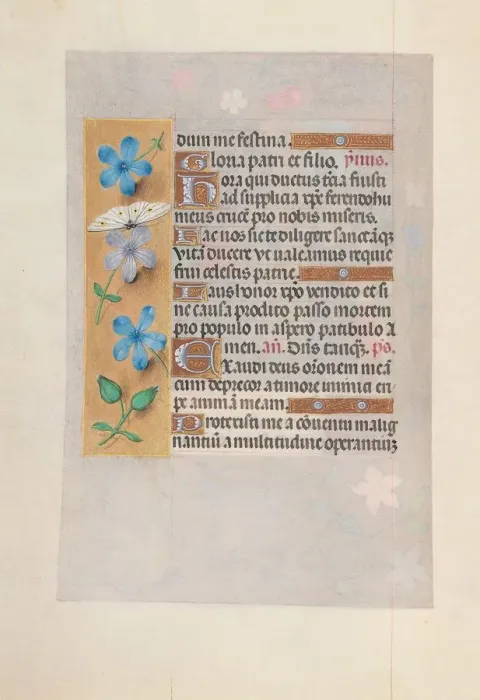 dum me festina.
Gloria patri et filio. ymus.
Hora qui ductus tcia fuisti
ad supplicia xpe ferendo hu
meus crucē pro nobis miseris.
Fac nos sic te diligere sanctāqꝫ
vitā ducere vt valeamus requie
frui celestis patrie.
Laus honor xpo vendito et si
ne causa prodito passo mortem
pro populo in aspero patibulo A
men. an. Dn̄s tanqꝫ. ps.
Exaudi deus orōnem meā
cum deprecor a timore inimici eri
pe animā meam.
Protexisti me a cōuentu malig
nantiū a multitudine operantiuꝫ